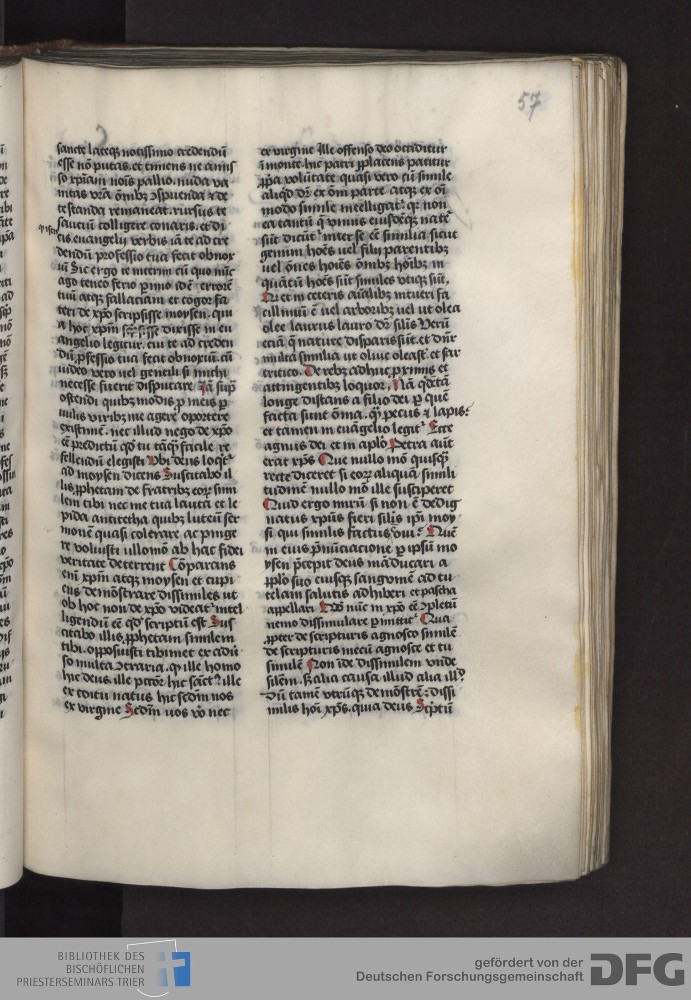 57
sancte lateqȝ notissimo credendū
esse nō putas. et timens ne amis
so xp̄iani nois pallio. nuda va
nitas vr̄a om̄ibȝ ↄspuenda ⁊ de
testanda remaneat. rursus te
sautiū colligere conaris. et di
cis euangelij verbis iā te ad cre
dendū professio tua fecit obnox
iū Sic ergo te interim cū quo nūc
ago teneo ferio p̄imo idē errorē
tuū atqȝ fallaciam et cogor fa
teri de xp̄o scripsisse moysen. qui
a hoc xp̄m dixisse in eu
angelio legitur. cui te ad creden
dū ꝓfessio tua fecit obnoxiū. cū
iudeo vero uel gentili si michi
necesse fuerit disputare Iā sup̄
ostendi quibȝ modis ꝓ meis ꝑ
uilis viribȝ me agere oportere
existimē. nec illud nego de xp̄o
eē predictū qd̄ tu tāqȝ facile re
fellendū elegisti Vbi deus loqt̄
ad moysen dicens Suscitabo il
lis ꝓphetam de fratribȝ eoꝝ simi
lem tibi nec me tua lauta et le
pida antitetha quibȝ luteū ser
monē quasi colerare ac pinge
re voluisti ullomō ab hac fidei
veritate deterrent Cōparans
enī xp̄m atqȝ moysen et cupi
ens demōstrare dissimiles ut
ob hoc non de xp̄o videat̄ intel
ligendū eē qd̄ scriptū est Sus
citabo illis ꝓphetam similem
tibi. opposuisti tibimet ex adū
so multa ↄtraria. qꝫ ille homo
hic deus ille pcc̄or hic sāct̄ ille
ex coitu natus hic sc̄dm nos
ex virgine Sc̄dm uos v̄o nec
ex virgine Ille offenso deo occiditur
ī monte. hic patri ꝓplacens patitur
ꝓp̄a volūtate quasi vero cū simile
aliqd̄ dr̄ ex om̄i parte atqȝ ex oī
modo simile intelligat̄. qꝛ non
ea tantū q̄ vnius eiusdēqȝ nat̄e
sūt dicūt̄ inter se eē similia sicut
gemini hoēs uel filij parentibȝ
uel om̄es hoīes om̄ibȝ hōibȝ in
quātū hoēs sūt similes vtiqȝ sūt.
Qr̄ et in ceteris aīalibȝ intueri fa
cillimū ē uel arboribȝ uel ut olea
olee laurus lauro dr̄ silis Verū
eciā q̄ nature disparis sūt. et dn̄r
multa similia ut oliue oleast̄ et far
tritico. De rebȝ adhuc p̄ximis et
attingentibȝ loquor. Nā qd̄ tā
longe distans a filio dei ꝑ quē
facta sunt om̄a. qꝫ pecus ⁊ lapis?
et tamen in euāgelio legit̄ Ecce
agnus dei et in aplo Petra aūt
erat xp̄s Que nullo mō quisqȝ
recte diceret si eoꝝ aliqua simili
tudinē nullo mō ille susciperet
Quid ergo mirū si non ē dedig
natus xp̄us fieri silis ip̄i moy
si qui similis factus
in eius p̄nūciacione ꝑ ipsū mo
ysen p̄cepit deus māducari a
pplo suo eiusqȝ sanguinē ad tu
telam salutis adhiberi et pascha
appellari Qd̄ nūc in xp̄o eē ↄpletū
nemo dissimulare ꝑmittit̄ Qua
ꝓpter de scripturis agnosco similē
de scripturis mecū agnosce et tu
similē Non īde dissimilem vnde
silem. Sȝ alia causa illud alia ill̄
Dū tamē vtrūqȝ demōstrēt dissi
milis hoī xp̄s. quia deus Scptū
BIBLIOTHEK DES
BISCHÖFLICHEN
PRIESTERSEMINARS TRIER
gefördert von der
Deutschen Forschungsgemeinschaft
DFG